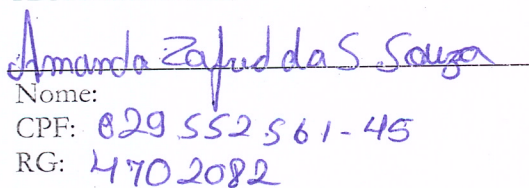 Amanda Zafud da S Souza
Nome:
CPF: 829 552 561-45
RG: 4702082